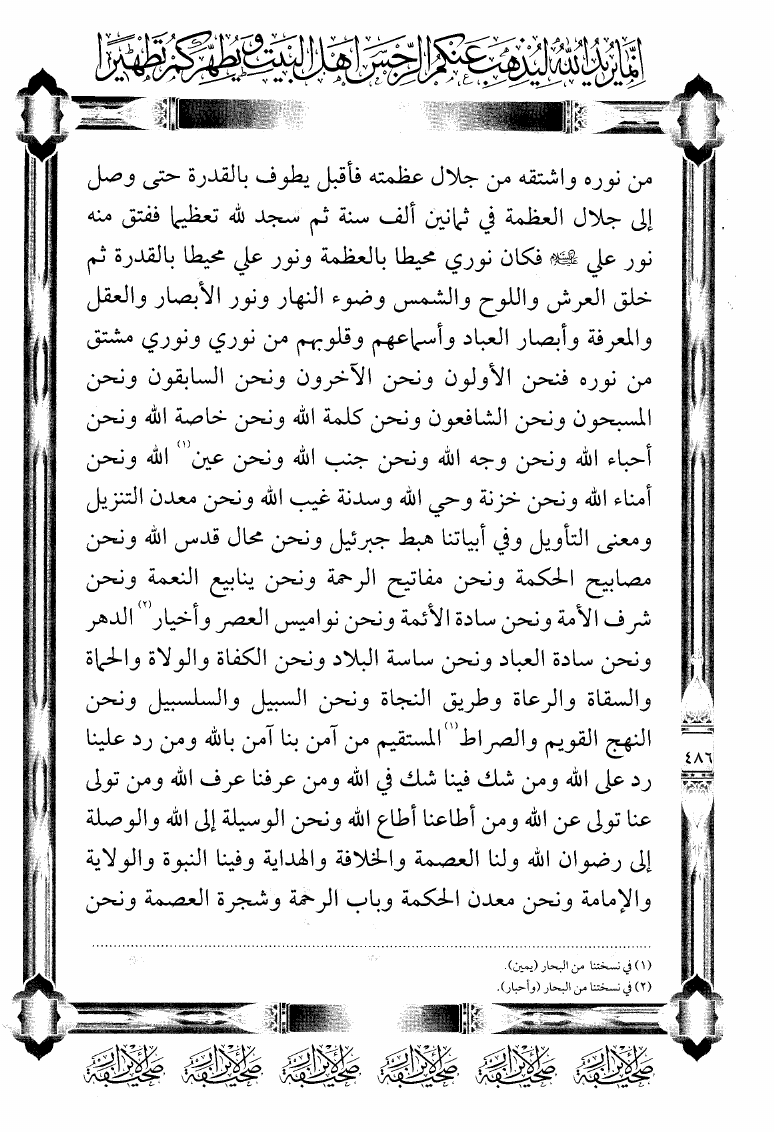 إنما يريد الله ليذهب عنكم الرجس أهل البيت ويطهركم تطهيرا
من نوره واشتقه من جلال عظمته فأقبل يطوف بالقدرة حتى وصل
إلى جلال العظمة في ثمانين ألف سنة ثم سجد لله تعظيما ففتق منه
نور علي عليه السلام فكان نوري محيطا بالعظمة ونور علي محيطا بالقدرة ثم
خلق العرش واللوح والشمس وضوء النهار ونور الأبصار والعقل
والمعرفة وأبصار العباد وأسماعهم وقلوبهم من نوري ونوري مشتق
من نوره فنحن الأولون ونحن الآخرون ونحن السابقون ونحن
المسبحون ونحن الشافعون ونحن كلمة الله ونحن خاصة الله ونحن
أحباء الله ونحن وجه الله ونحن جنب الله ونحن عين(١) الله ونحن
أمناء الله ونحن خزنة وحي الله وسدنة غيب الله ونحن معدن التنزيل
ومعنى التأويل وفي أبياتنا هبط جبرئيل ونحن محال قدس الله ونحن
مصابيح الحكمة ونحن مفاتيح الرحمة ونحن ينابيع النعمة ونحن
شرف الأمة ونحن سادة الأئمة ونحن نواميس العصر وأخيار(٢) الدهر
ونحن سادة العباد ونحن ساسة البلاد ونحن الكفاة والولاة والحماة
والسقاة والرعاة وطريق النجاة ونحن السبيل والسلسبيل ونحن
النهج القويم والصراط(١) المستقيم من آمن بنا آمن بالله ومن رد علينا
رد على الله ومن شك فينا شك في الله ومن عرفنا عرف الله ومن تولى
عنا تولى عن الله ومن أطاعنا أطاع الله ونحن الوسيلة إلى الله والوصلة
إلى رضوان الله ولنا العصمة والخلافة والهداية وفينا النبوة والولاية
والإمامة ونحن معدن الحكمة وباب الرحمة وشجرة العصمة ونحن
(١) في نسختنا من البحار (يمين).
(٢) في نسختنا من البحار (وأحبار).
٤٨٦
صحيفة الأبرار صحيفة الأبرار صحيفة الأبرار صحيفة الأبرار صحيفة الأبرار صحيفة الأبرار